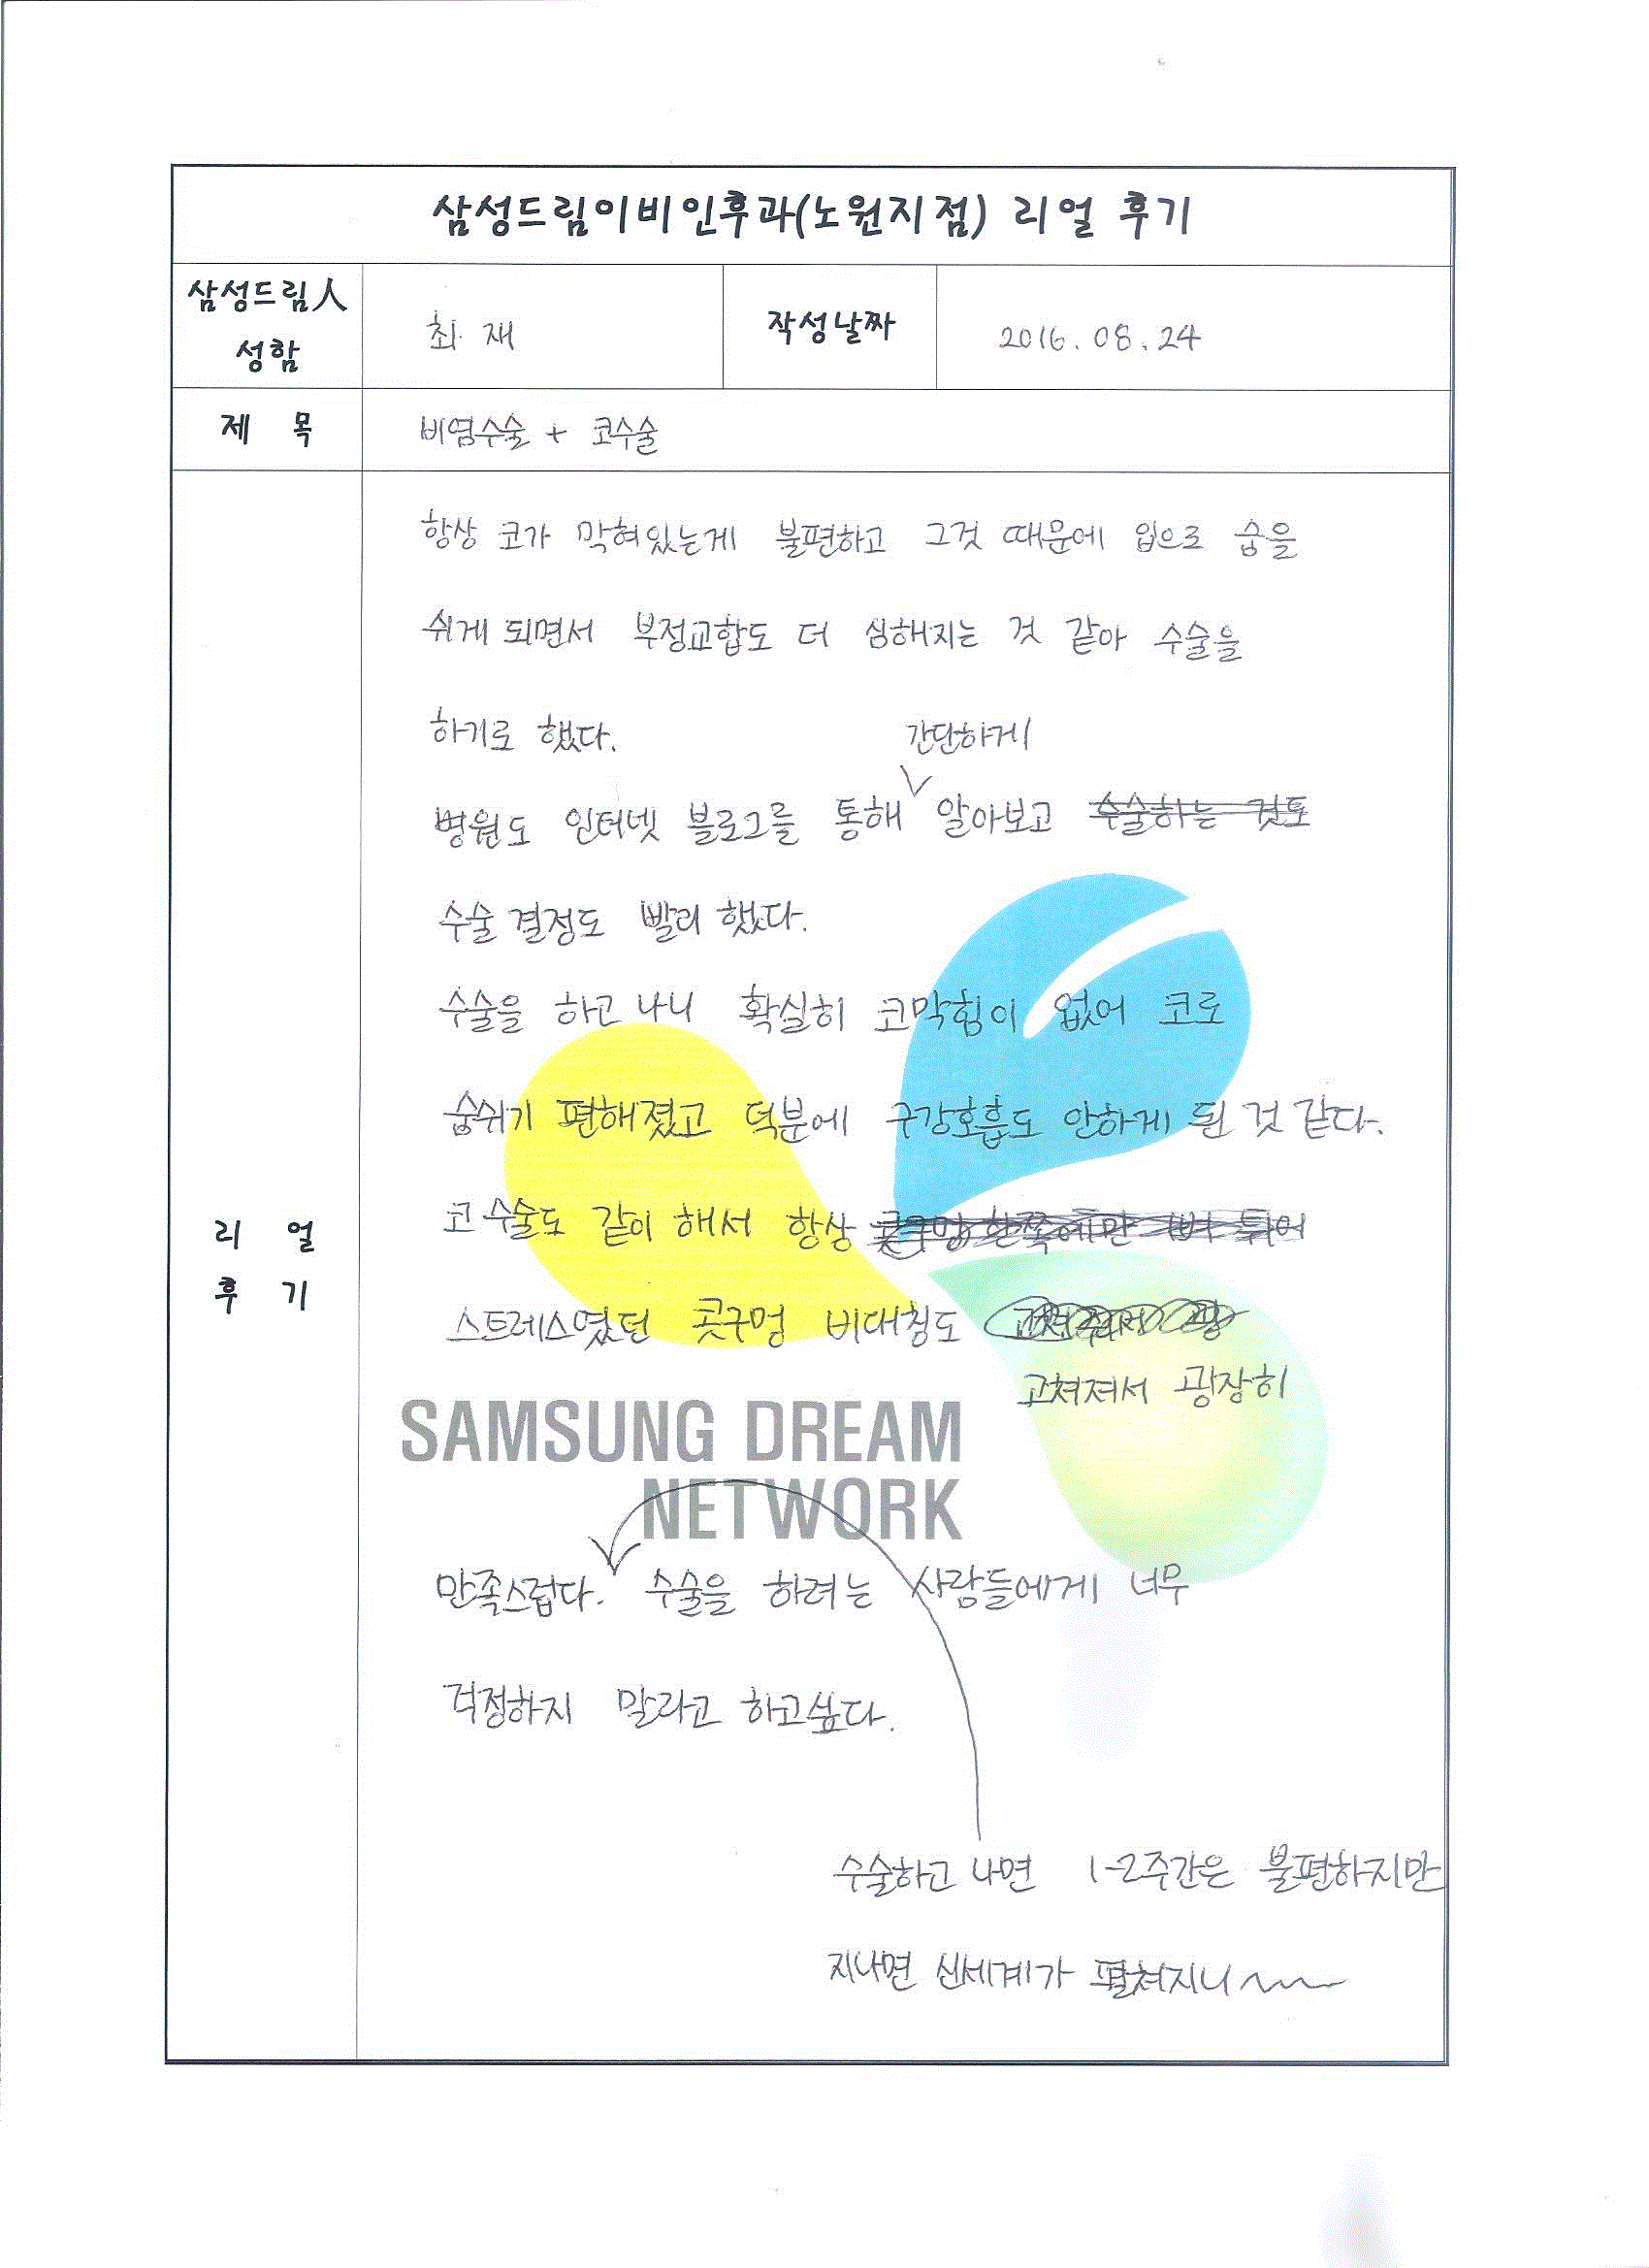 삼성드림이비인후과(노원지점) 리얼 후기
삼성드림人
성함
최 재
작성날짜
2016. 08. 24
제 목
비염수술 + 코수술
리 얼
후 기
항상 코가 막혀있는게 불편하고 그것 때문에 입으로 숨을
쉬게 되면서 부정교합도 더 심해지는 것 같아 수술을
하기로 했다.
간단하게
병원도 인터넷 블로그를 통해 알아보고 수술하는 것도
수술 결정도 빨리 했다.
수술을 하고 나니 확실히 코막힘이 없어 코로
숨쉬기 편해졌고 덕분에 구강호흡도 안하게 된 것 같다.
코 수술도 같이 해서 항상
스트레스였던 콧구멍 비대칭도
고쳐져서 굉장히
SAMSUNG DREAM
NETWORK
만족스럽다. 수술을 하려는 사람들에게 너무
걱정하지 말라고 하고싶다.
수술하고 나면 1-2주간은 불편하지만
지나면 신세계가 펼쳐지니~